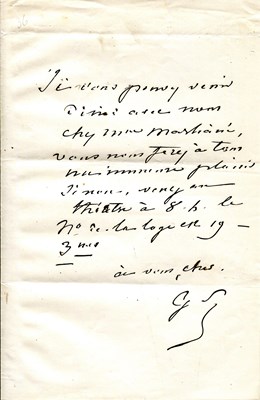 Si vous pouvez venir
diner avec nous
chez mme
vous nous ferez à tous
un immense plaisir
Sinon, venez au
théâtre à 8. h. le
No de la loge est 19 –
3mes
à vous, cher.
G S